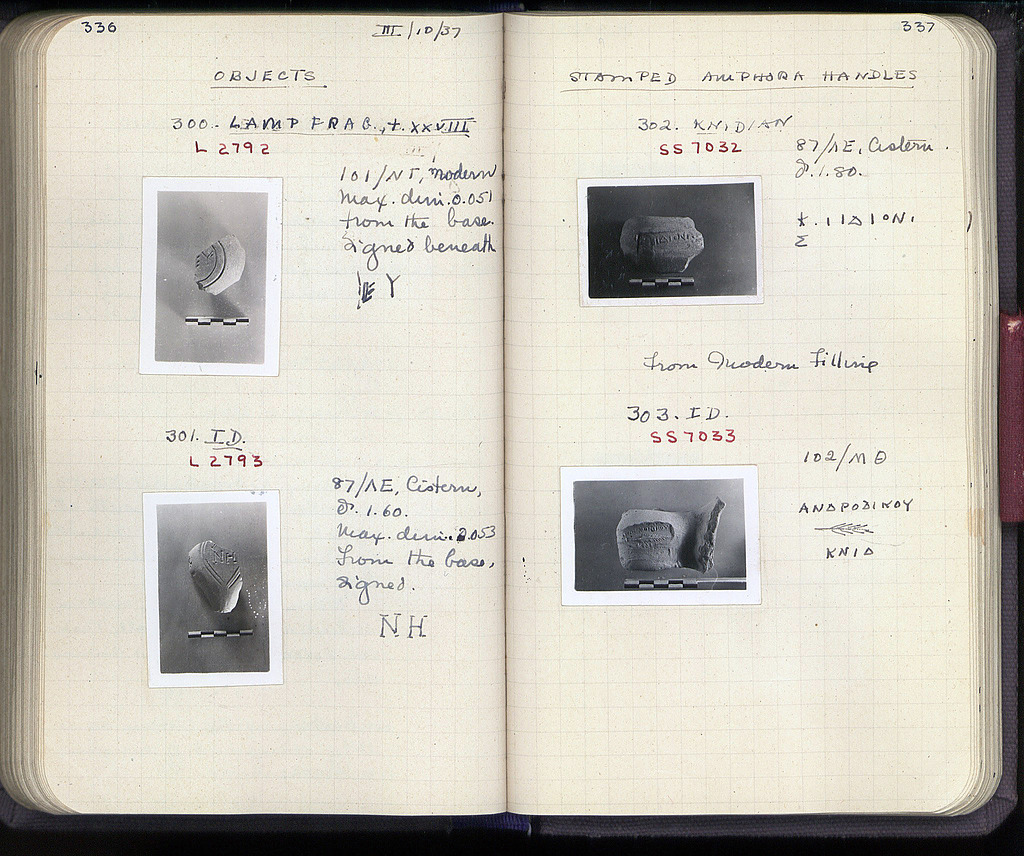 336
III/10/37
OBJECTS
300. LAMP FRAG., t. XXVIII
L 2792
101/ΝΓ, modern
Max. dim. 0.051
From the base.
Signed beneath
Y
301. ID.
L 2793
87/ΛΕ, Cistern,
d. 1.60.
Max. dim. 0.053
From the base,
Signed.
NH
NH
337
STAMPED AMPHORA HANDLES
302. KNIDIAN
SS 7032
87/ΛΕ, Cistern.
d. 1.80.
Σ
From Modern Filling
303. ID.
SS 7033
102/ΜΘ
ΑΝΔΡΟΔΙΚΟΥ
ΚΝΙΔ